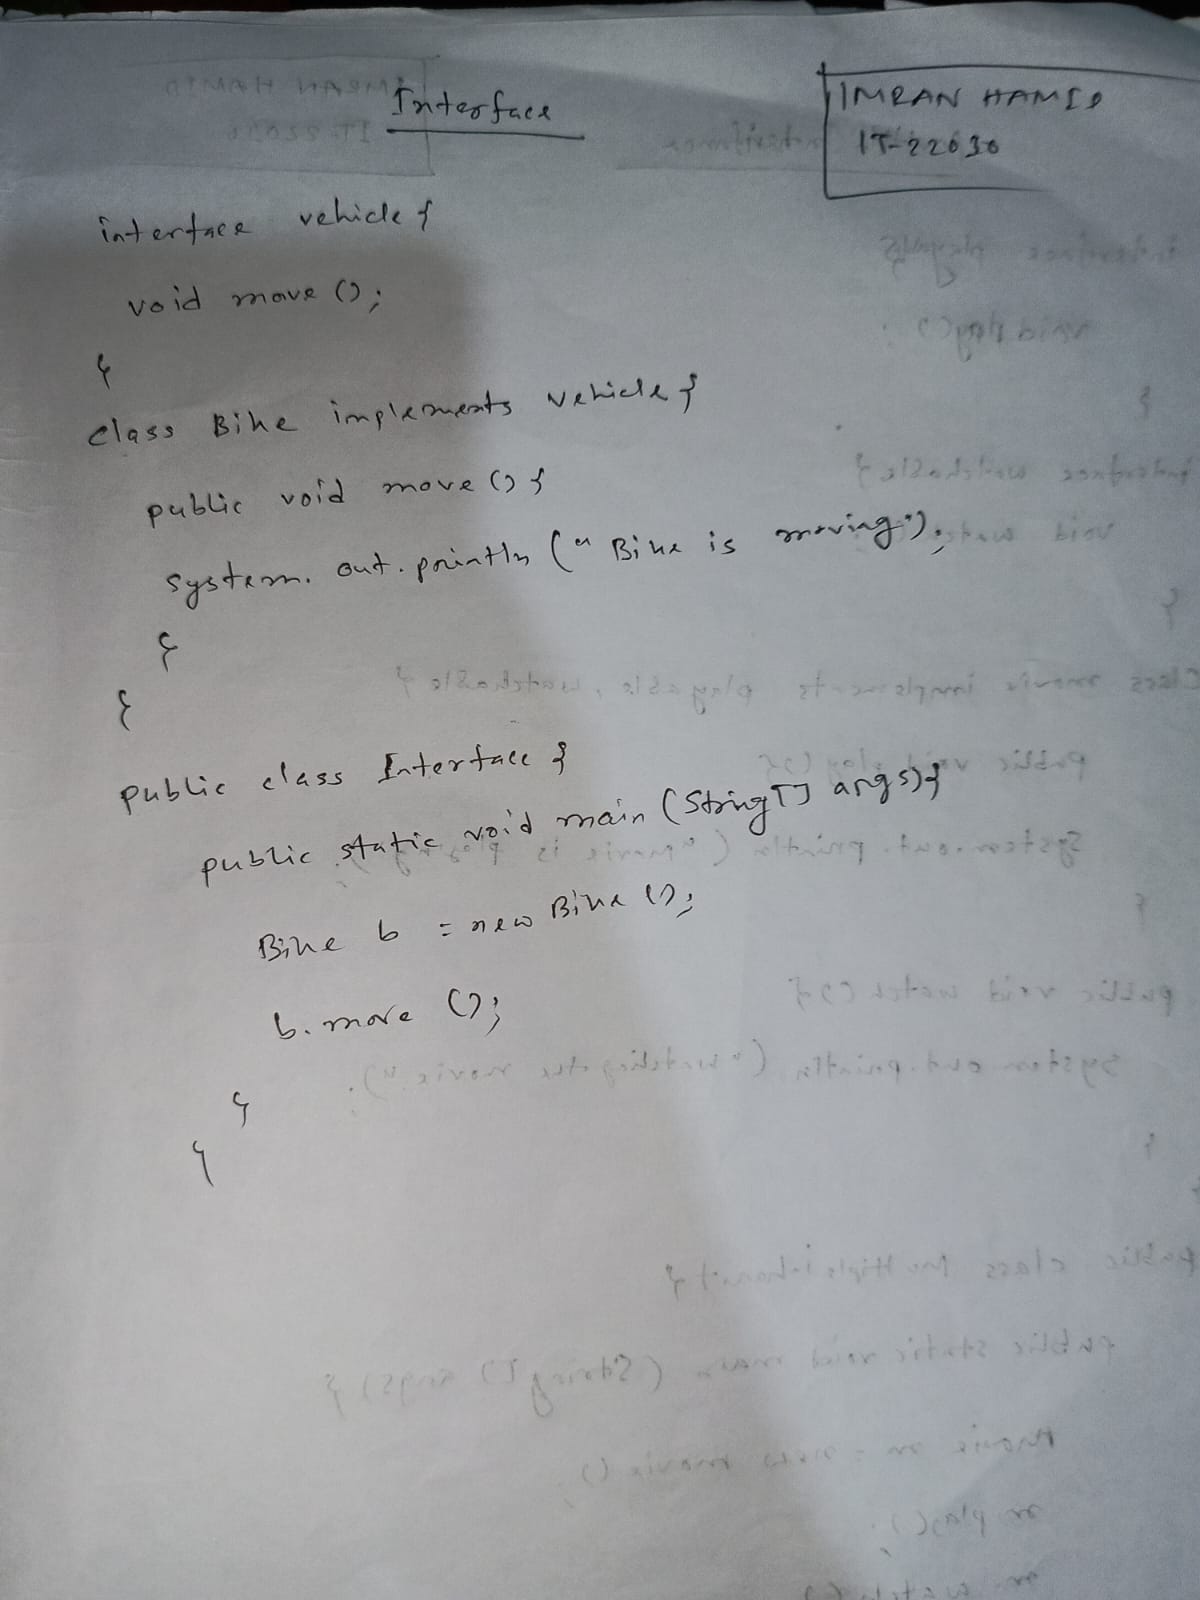 Interface
IMRAN HAMID
IT-22030
interface vehicle {
void move ();
}
class Bike implements vehicle {
public void move () {
System. out. println (" Bike is moving");
}
}
public class Interface {
public static void main (String[] args) {
Bike b = new Bike ();
b. move ();
}
}